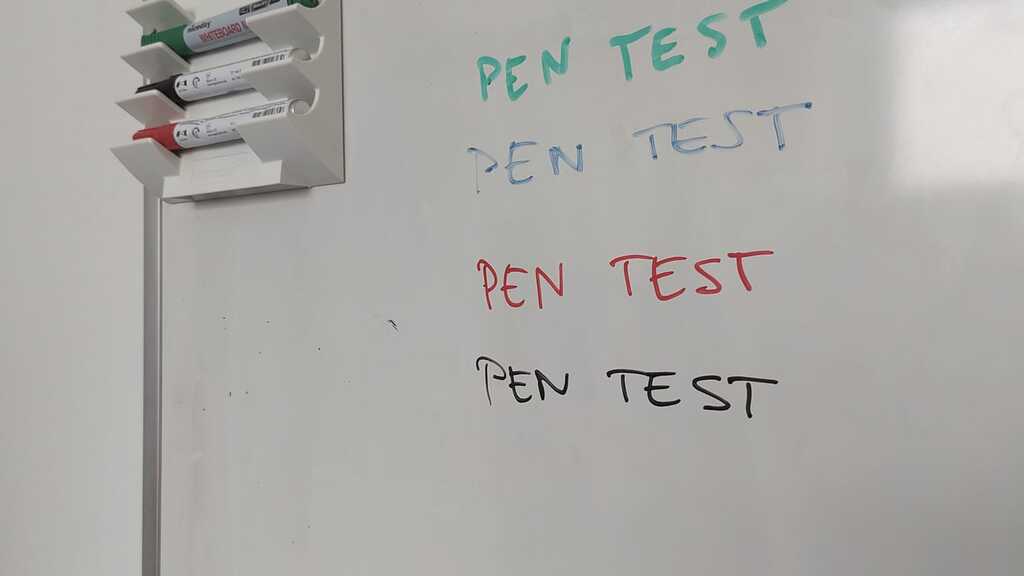 WHITEBOARD
PEN TEST
PEN TEST
PEN TEST
PEN TEST